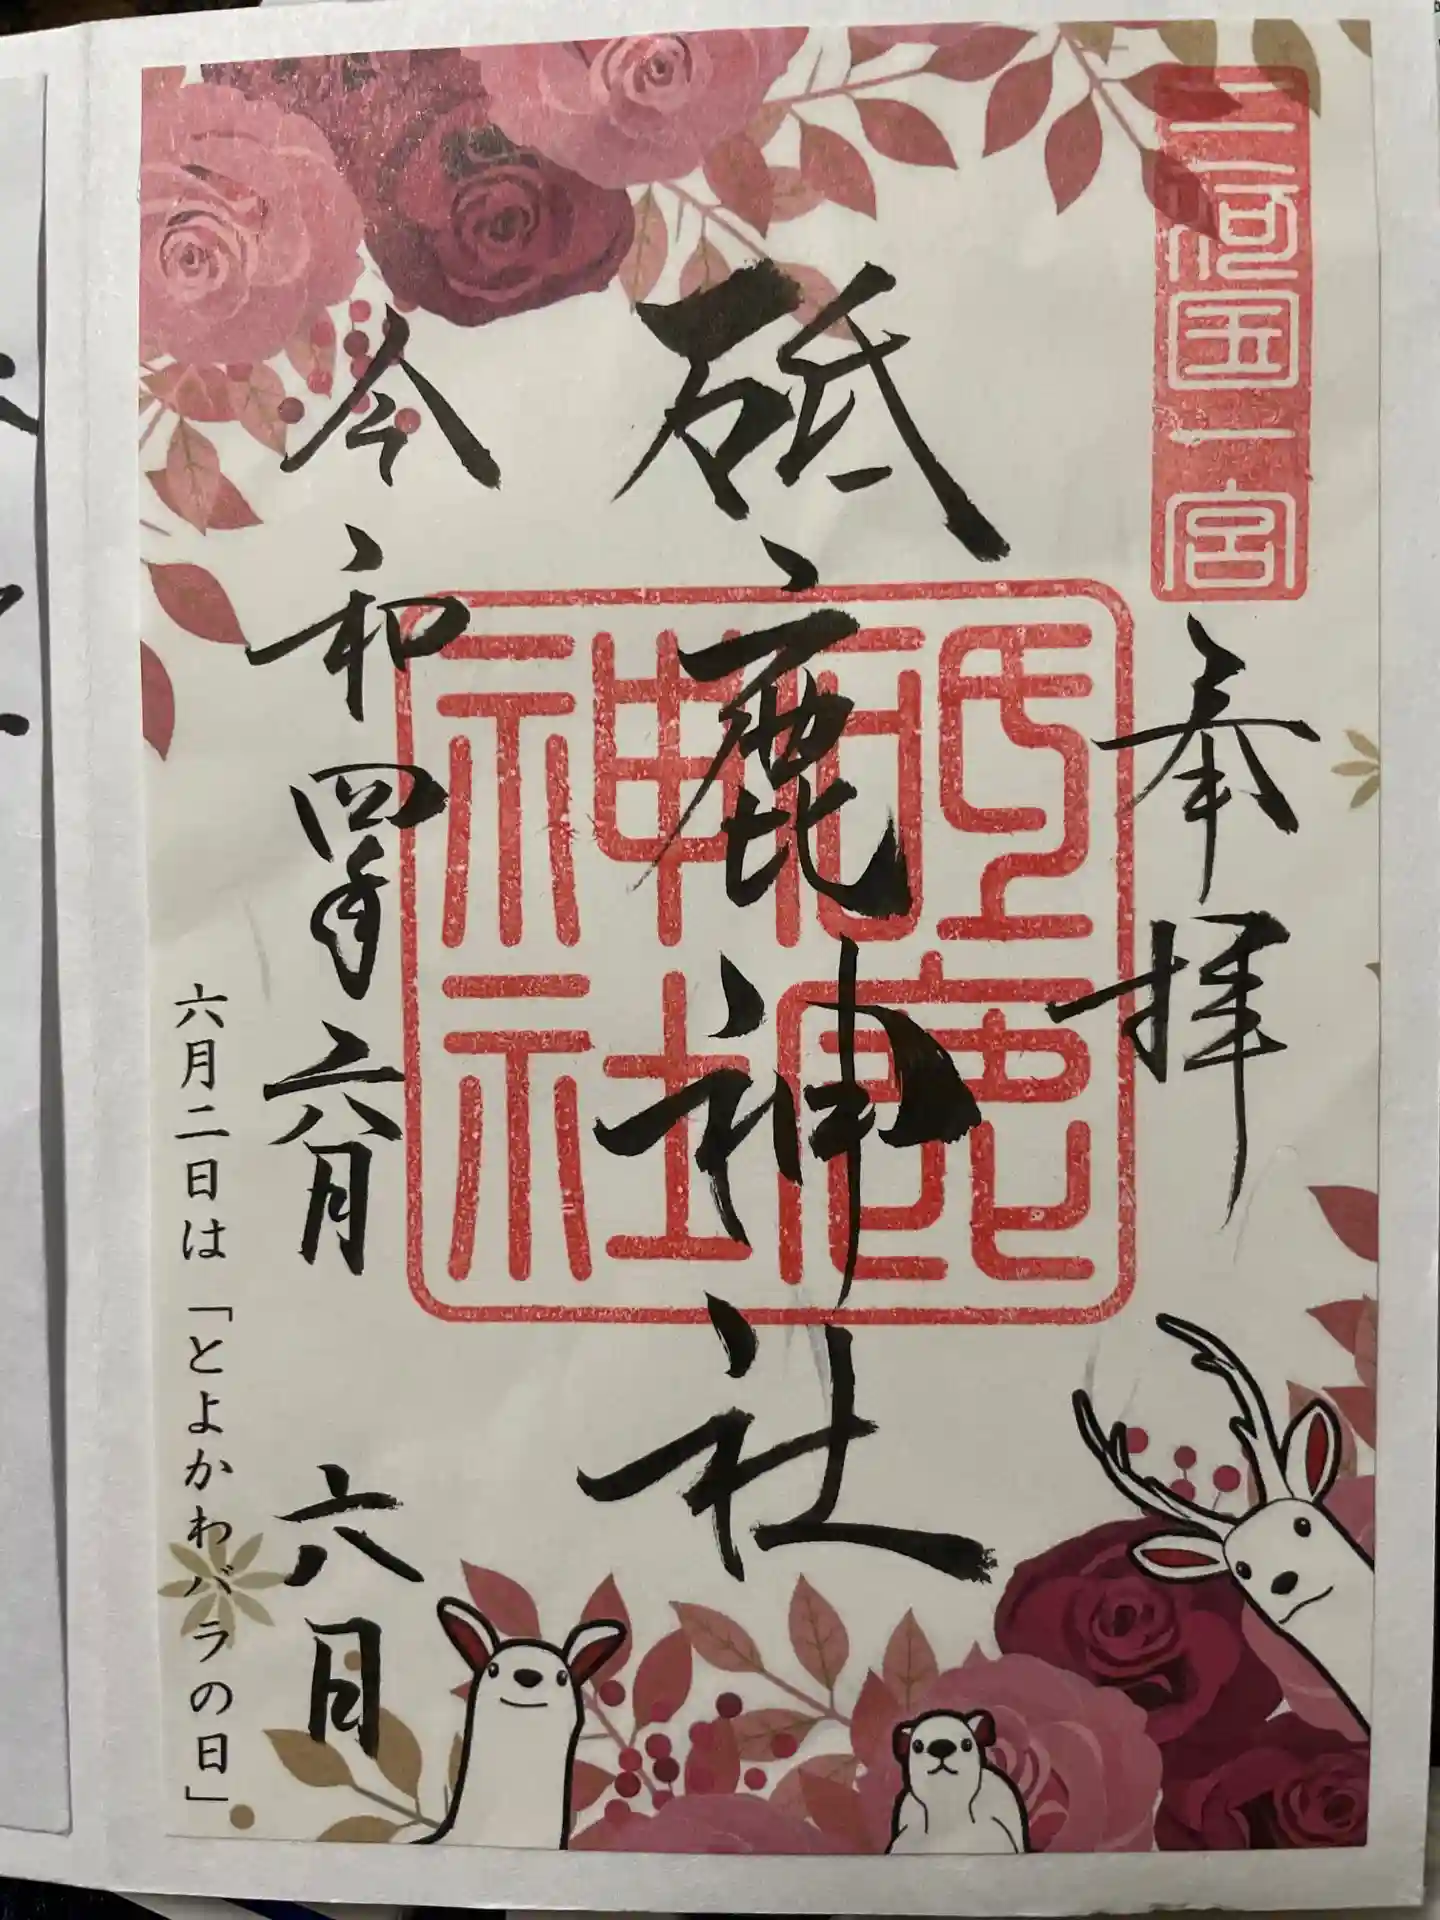 三河国一宮
奉拝
砥鹿神社
砥鹿神社
令和四年六月六日
六月二日は「とよかわバラの日」